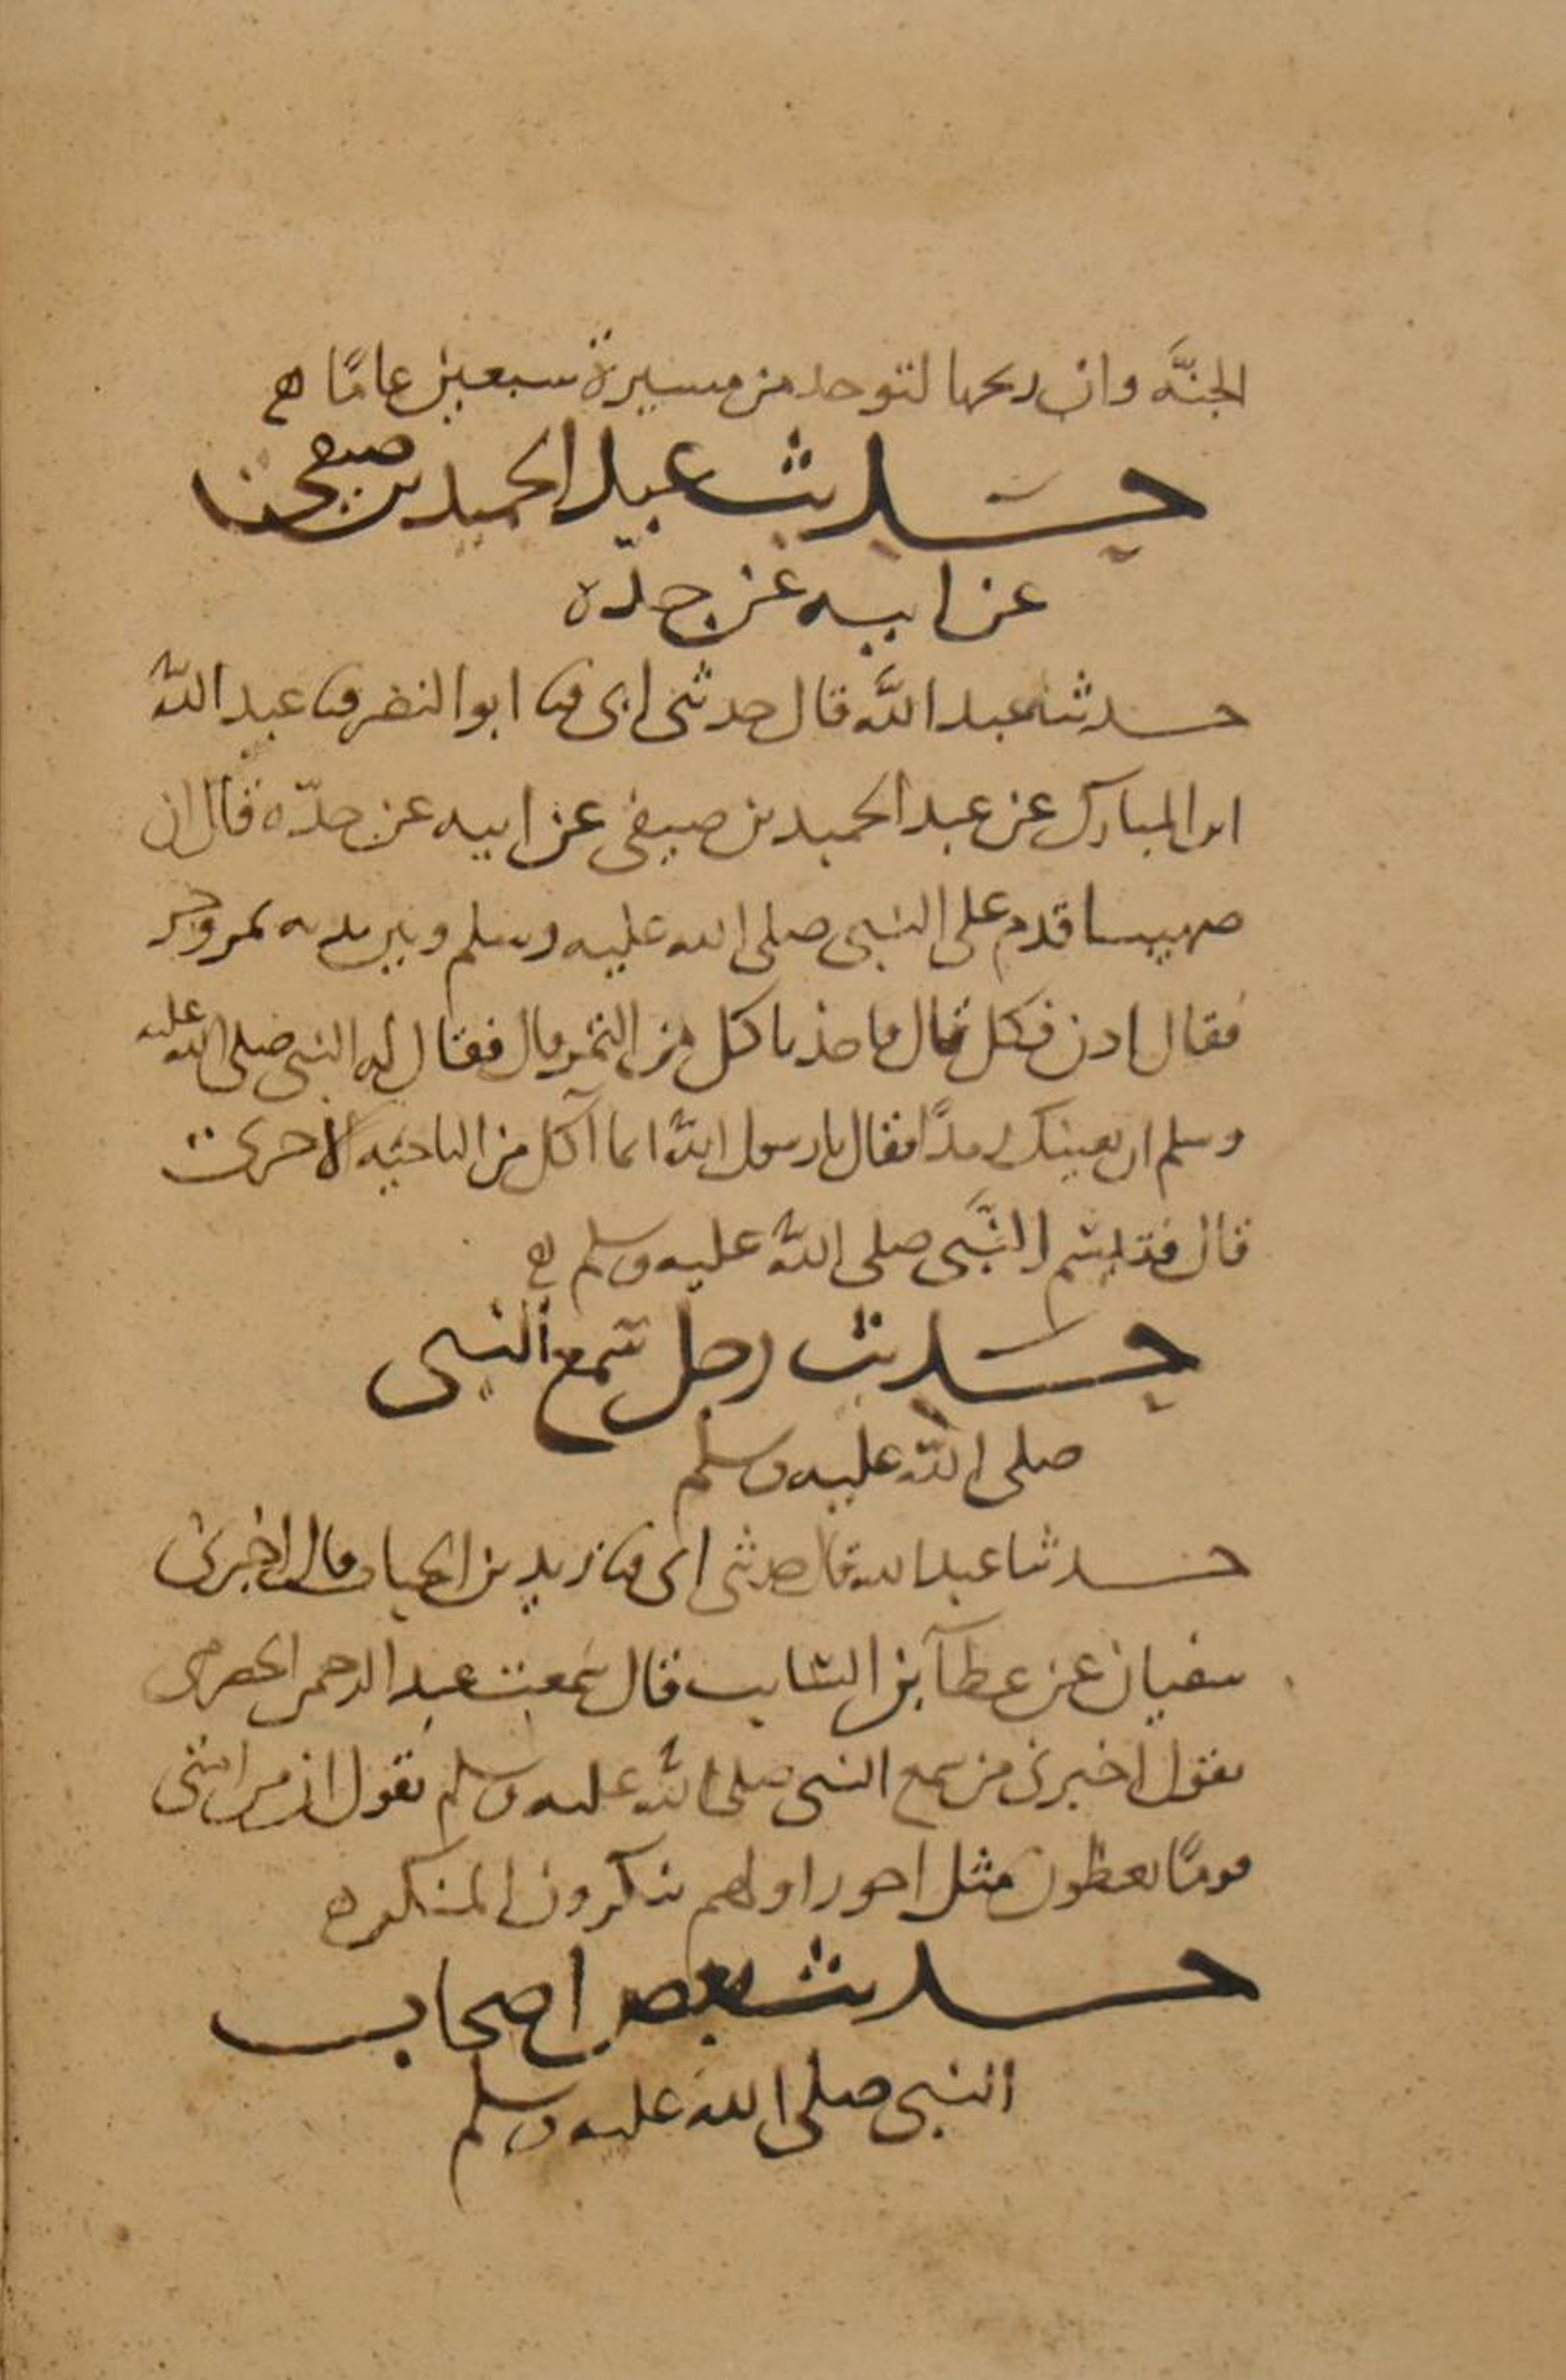 الجنَّة وان ريحها لتوجد من مسيرة سبعين عامًا
حديث عبد الحميد بن صيفي
عن ابيه عن جدّه
حدثنا عبد الله قال حدثني ابي ثنا ابو النضر ثنا عبد الله
ابن المبارك عن عبد الحميد بن صيفي عن ابيه عن جدّه قال ان
صهيبا قدم على النبي صلى الله عليه وسلم وبين يديه تمر وخبز
فقال ادن فكل قال فاخذ ياكل من التمر قال فقال له النبي صلى الله عليه
وسلم ان بعينك رمدًا فقال يا رسول الله انما آكل من الناحية الاخرى
قال فتبسم النَّبي صلى الله عليه وسلم
حديث رجل سمع النبي
صلى الله عليه وسلم
حدثنا عبد الله قال حدثني ابي ثنا زيد بن الحباب قال اخبرني
سفيان عن عطآ بن السايب قال سمعت عبد الرحمن الحضرمي
يقول اخبرني من سمع النبي صلى الله عليه وسلم يقول ان من امتي
قومًا يعطون مثل اجور اولهم ينكرون المنكر
حديث بعض اصحاب
النبي صلى الله عليه وسلم